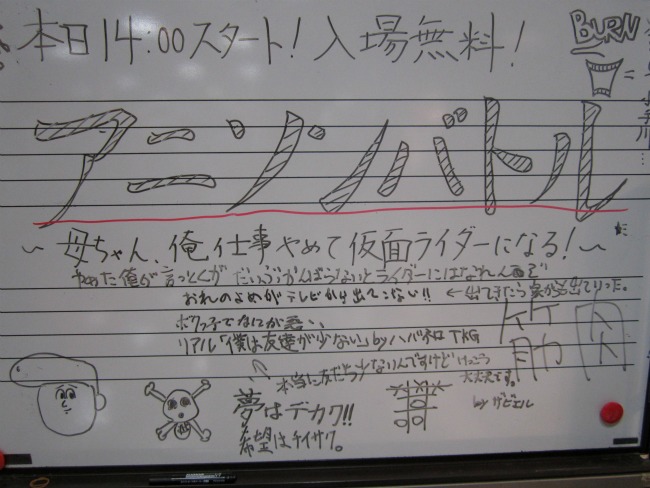 本日14:00スタート! 入場無料!
BURN
アニソンバトル
～母ちゃん、俺仕事やめて仮面ライダーになる!～
やめた俺が言っとくが だいぶがんばらないとライダーにはなれんぞ
おれのよめがテレビから出てこない!! ←出てきたら家から出てった。
ボクっ子でなにが悪い、
リアル「僕は友達が少ない」by ハバネロTKG
本当に友だち少ないんですけどけっこう
大丈夫です。
by ザビエル
夢はデカク!!
希望はチイサク。